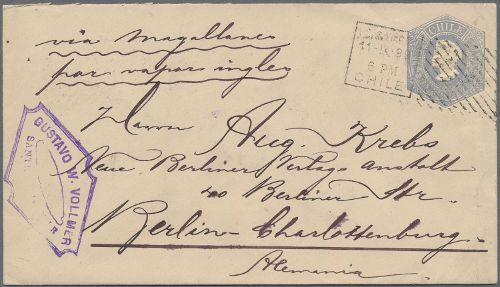 via Magallanes
par vapor ingles
11-IX-9
6 PM
CHILE
CHILE
GUSTAVO W. VOLLMER
Herrn Aug. Krebs
Neue Berliner Verlags anstalt
40 Berliner Str.
Berlin-Charlottenburg.
Alemania.